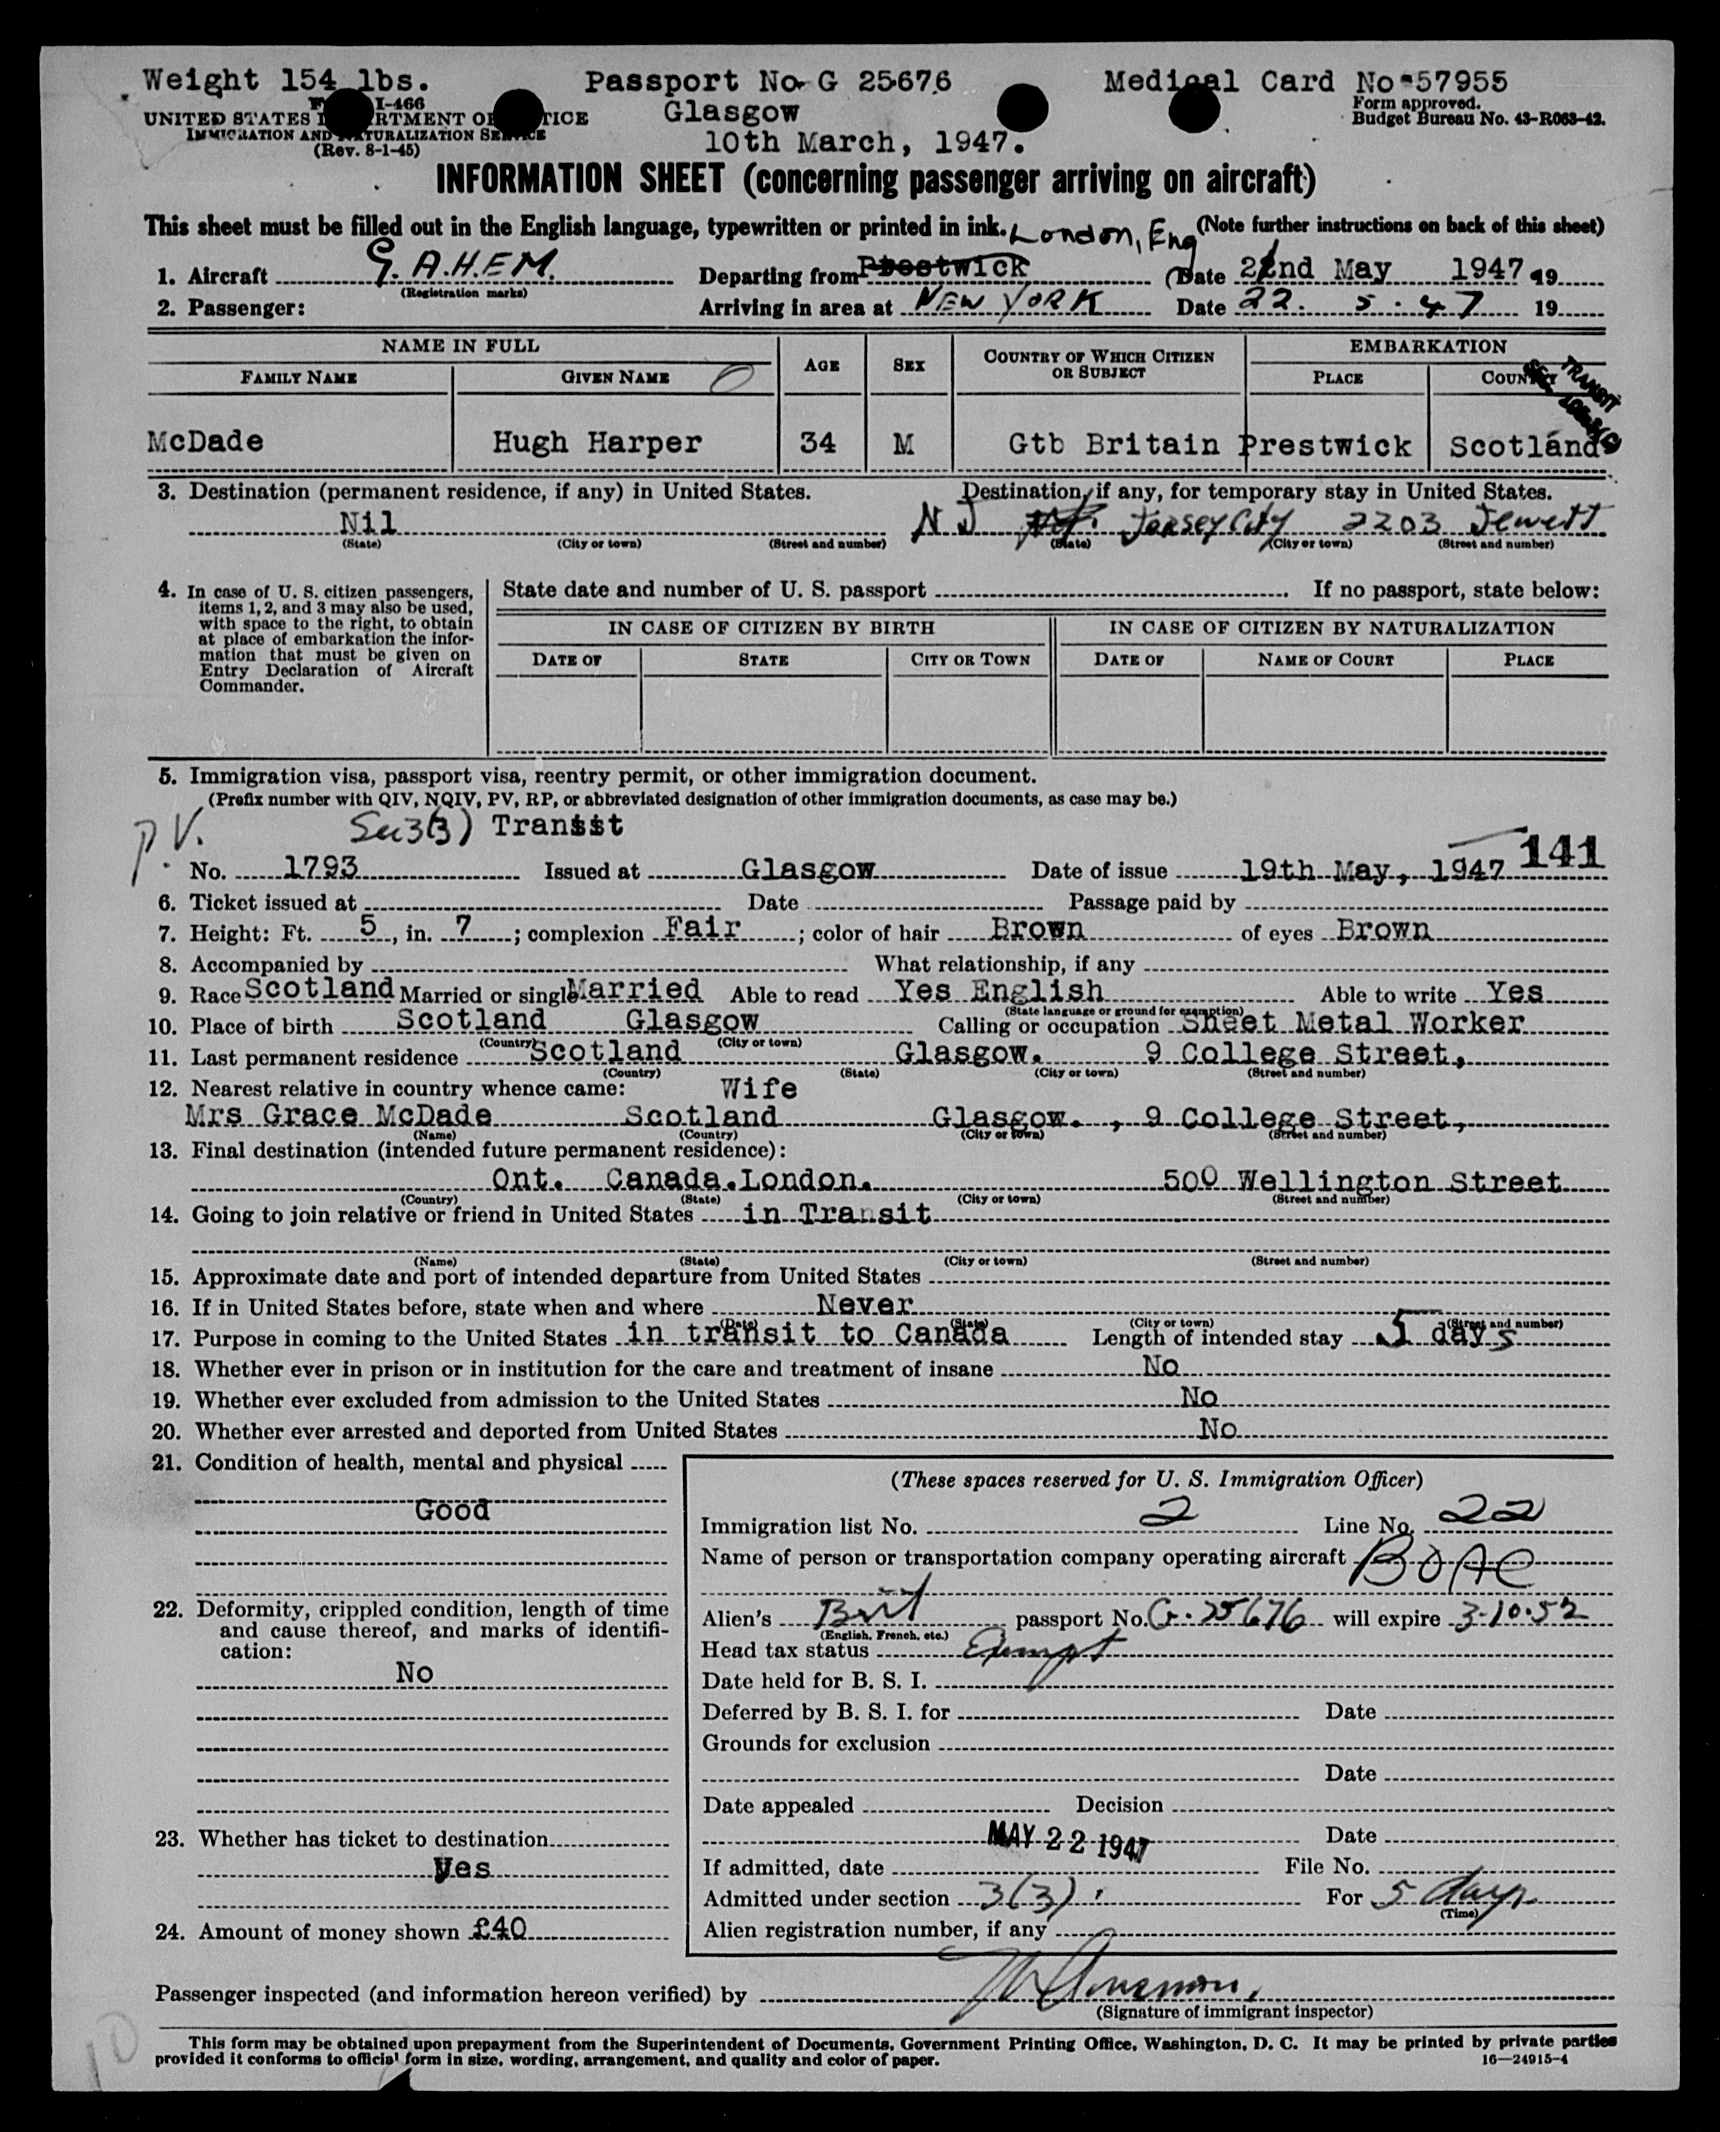 Weight 154 lbs. Passport No. G 25676 Medical Card No 57955
I-466 Glasgow Form approved.
UNITED STATES DEPARTMENT OF JUSTICE Budget Bureau No. 43-R063-42.
IMMIGRATION AND NATURALIZATION SERVICE 10th March, 1947.
(Rev. 8-1-45)
INFORMATION SHEET (concerning passenger arriving on aircraft)
This sheet must be filled out in the English language, typewritten or printed in ink. London, Eng (Note further instructions on back of this sheet)
1. Aircraft G. A.H.E.M. Departing from Prestwick (Date 22nd May 1947 19
(Registration marks)
2. Passenger: Arriving in area at NEW YORK Date 22. 5. 47 19
NAME IN FULL AGE SEX COUNTRY OF WHICH CITIZEN OR SUBJECT EMBARKATION
FAMILY NAME GIVEN NAME PLACE COUNTRY
TRANSIT
McDade Hugh Harper 34 M Gtb Britain Prestwick Scotland
3. Destination (permanent residence, if any) in United States. Destination, if any, for temporary stay in United States.
Nil N J Jersey City 2203 Jewett
(State) (City or town) (Street and number) (State) (City or town) (Street and number)
4. In case of U. S. citizen passengers, items 1, 2, and 3 may also be used, with space to the right, to obtain at place of embarkation the information that must be given on Entry Declaration of Aircraft Commander.
State date and number of U. S. passport If no passport, state below:
IN CASE OF CITIZEN BY BIRTH IN CASE OF CITIZEN BY NATURALIZATION
DATE OF STATE CITY OR TOWN DATE OF NAME OF COURT PLACE
5. Immigration visa, passport visa, reentry permit, or other immigration document.
(Prefix number with QIV, NQIV, PV, RP, or abbreviated designation of other immigration documents, as case may be.)
PV. Sec 3(3) Transit
141
No. 1793 Issued at Glasgow Date of issue 19th May, 1947
6. Ticket issued at Date Passage paid by
7. Height: Ft. 5, in. 7; complexion Fair; color of hair Brown of eyes Brown
8. Accompanied by What relationship, if any
9. Race Scotland Married or single Married Able to read Yes English Able to write Yes
(State language or ground for exemption)
10. Place of birth Scotland Glasgow Calling or occupation Sheet Metal Worker
(Country) (City or town)
11. Last permanent residence Scotland Glasgow. 9 College Street,
(Country) (State) (City or town) (Street and number)
12. Nearest relative in country whence came: Wife
Mrs Grace McDade Scotland Glasgow. , 9 College Street,
(Name) (Country) (City or town) (Street and number)
13. Final destination (intended future permanent residence):
Ont. Canada. London. 500 Wellington Street
(Country) (State) (City or town) (Street and number)
14. Going to join relative or friend in United States in Transit
(Name) (State) (City or town) (Street and number)
15. Approximate date and port of intended departure from United States
16. If in United States before, state when and where Never
(Date) (State) (City or town) (Street and number)
17. Purpose in coming to the United States in transit to Canada Length of intended stay 5 days
18. Whether ever in prison or in institution for the care and treatment of insane No
19. Whether ever excluded from admission to the United States No
20. Whether ever arrested and deported from United States No
21. Condition of health, mental and physical
Good
22. Deformity, crippled condition, length of time and cause thereof, and marks of identification:
No
23. Whether has ticket to destination
Yes
24. Amount of money shown £40
(These spaces reserved for U. S. Immigration Officer)
Immigration list No. 2 Line No. 22
Name of person or transportation company operating aircraft BOAC
Alien's Brit passport No. G. 25676 will expire 3-10-52
(English, French, etc.)
Head tax status Exempt
Date held for B. S. I.
Deferred by B. S. I. for Date
Grounds for exclusion
Date
Date appealed Decision
Date
MAY 22 1947
If admitted, date File No.
Admitted under section 3(3) For 5 days
(Time)
Alien registration number, if any
Passenger inspected (and information hereon verified) by
(Signature of immigrant inspector)
10
This form may be obtained upon prepayment from the Superintendent of Documents, Government Printing Office, Washington, D. C. It may be printed by private parties
provided it conforms to official form in size, wording, arrangement, and quality and color of paper. 16—24915-4